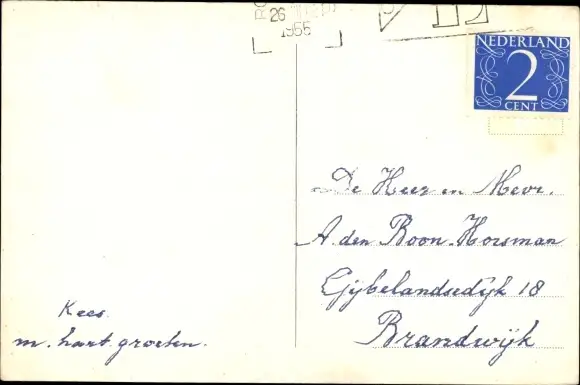 26
1955
NEDERLAND
2
CENT
De Heer en Mevr.
A. den Boon-Horsman
Gijbelandsedijk 18
Brandwijk
Kees.
m. hart. groeten.